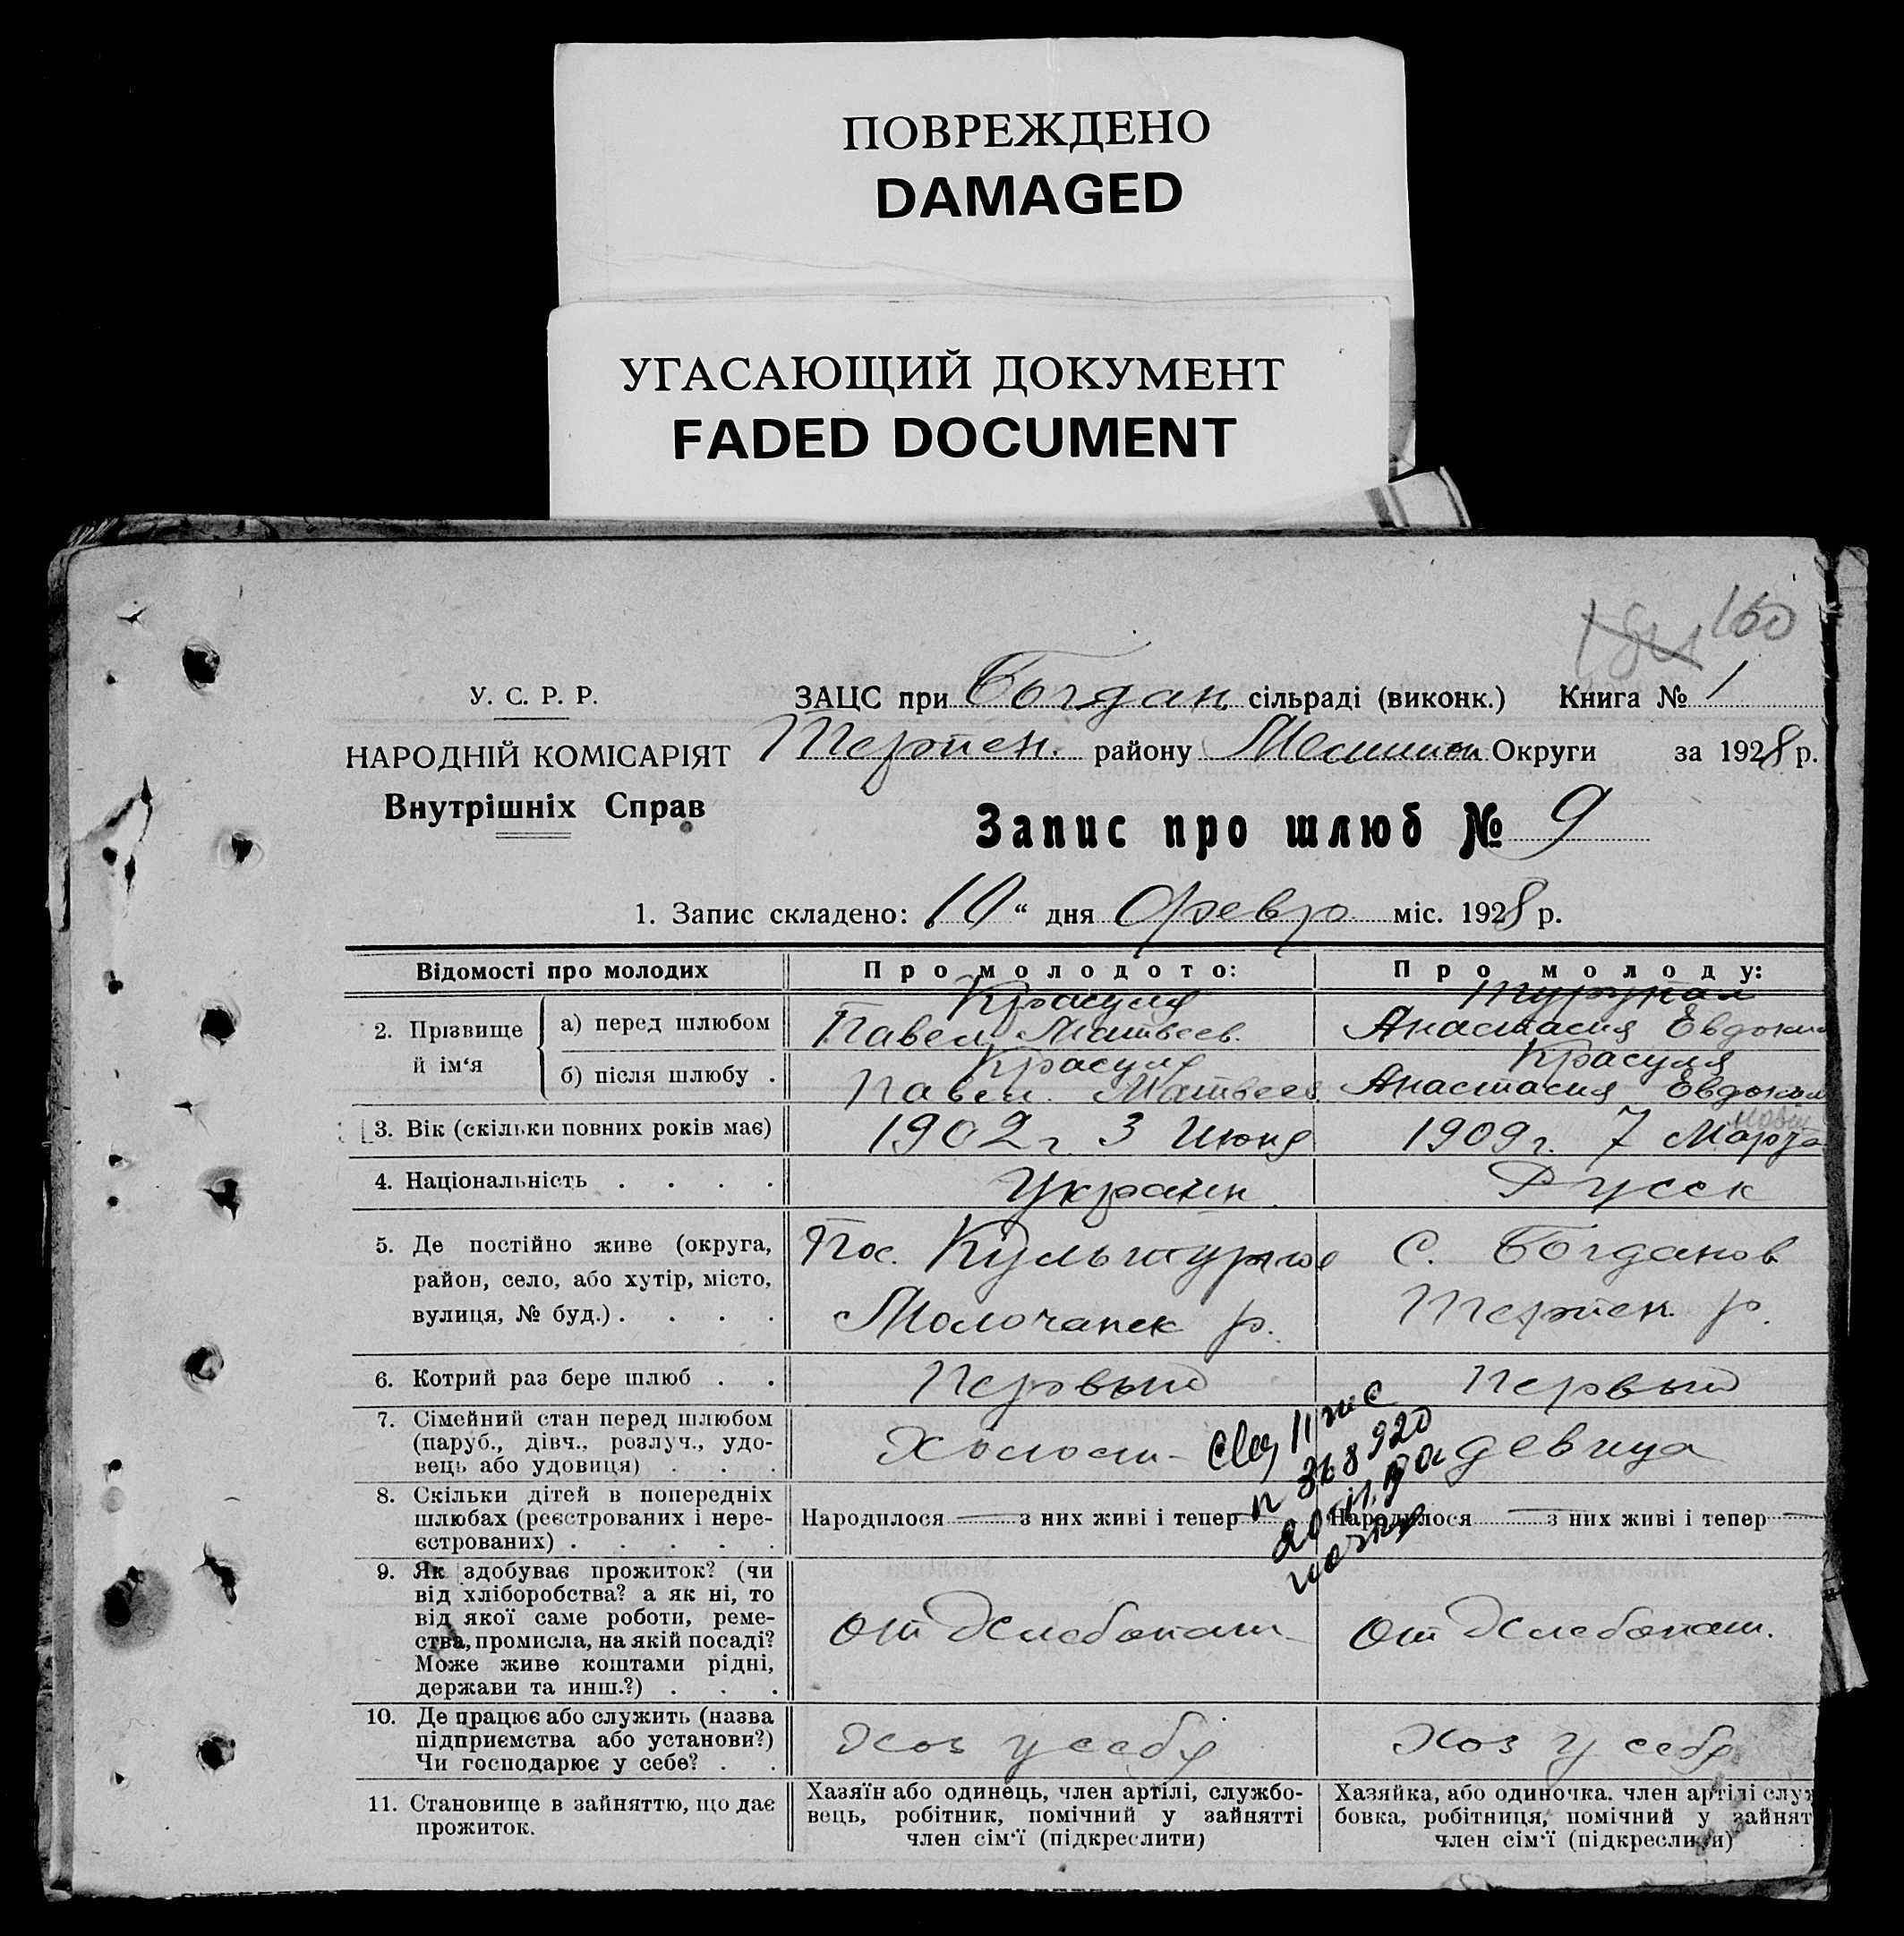 ПОВРЕЖДЕНО
DAMAGED
УГАСАЮЩИЙ ДОКУМЕНТ
FADED DOCUMENT
160
У. С. Р. Р.
НАРОДНІЙ КОМІСАРІЯТ
Внутрішніх Справ
ЗАЦС при Богдан. сільраді (виконк.) Книга № 1
Терпен. району Округи за 1928 р.
Запис про шлюб № 9
1. Запис складено: 10 “ дня Февр міс. 1928 р.
Відомості про молодих
Про молодого:
Про молоду:
2. Прізвище й ім‘я
а) перед шлюбом
Красуля
Павел Матвеев.
Анастасия Евдоким
б) після шлюбу .
Красуля
Павел Матвеев
Красуля
Анастасия Евдоким
3. Вік (скільки повних років має)
1902 г. 3 Июня
1909 г. 7 Марта
4. Національність . . . .
Украин
Русск
5. Де постійно живе (округа,
район, село, або хутір, місто,
вулиця, № буд.) . . . .
Пос. Культурное
Молочанск р.
С. Богданов
Терпен. р.
6. Котрий раз бере шлюб . .
Первый
Первый
7. Сімейний стан перед шлюбом
(паруб., дівч., розлуч., удо-
вець або удовиця) . . .
Холост -
девица
368920
8. Скільки дітей в попередніх
шлюбах (реєстрованих і нере-
єстрованих) . . . . .
Народилося — з них живі і тепер
Народилося — з них живі і тепер —
9. Як здобуває прожиток? (чи
від хліборобства? а як ні, то
від якої саме роботи, реме-
ства, промисла, на якій посаді?
Може живе коштами рідні,
держави та инш.?) . . .
от Хлебопаш
от Хлебопаш.
10. Де працює або служить (назва
підприємства або установи?)
Чи господарює у себе? . .
Хоз у себя
Хоз у себя
11. Становище в зайняттю, що дає
прожиток.
Хазяїн або одинець, член артілі, службо-
вець, робітник, помічний у зайнятті
член сім‘ї (підкреслити)
Хазяйка, або одиночка. член артілі служ
бовка, робітниця, помічний у зайнят
член сім‘ї (підкреслити)